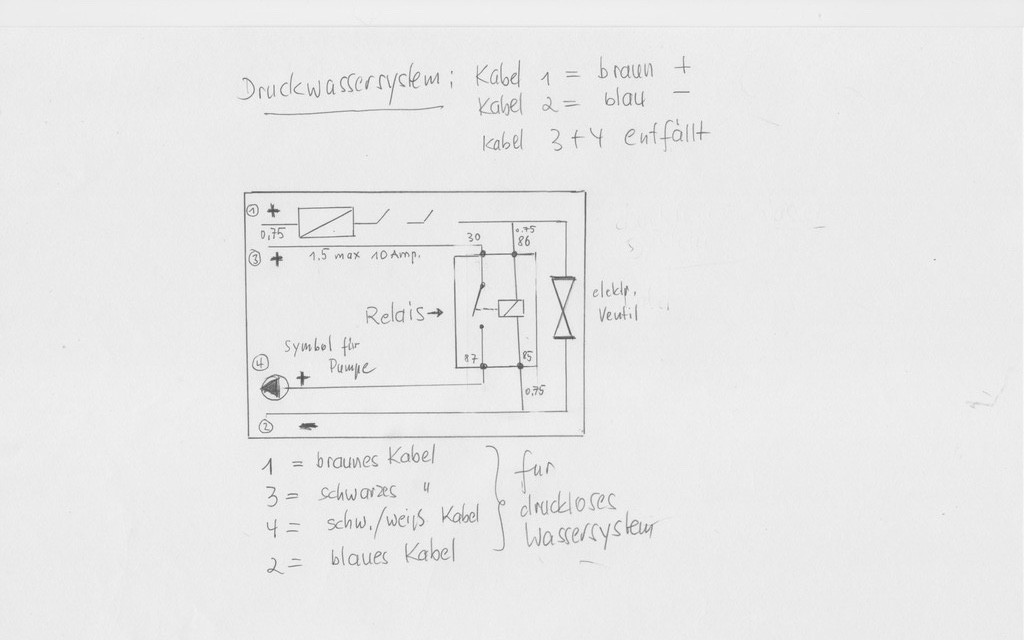 Druckwassersystem: Kabel 1 = braun +
Kabel 2 = blau -
Kabel 3+4 entfällt
① +
0,75
0.75
30
86
③ +
1.5 max 10 Amp.
elektr.
Ventil
Relais →
Symbol für
Pumpe
④
+
87
85
0,75
② -
1 = braunes Kabel
3 = schwarzes "
4 = schw./weiß Kabel
2 = blaues Kabel
für
druckloses
Wassersystem